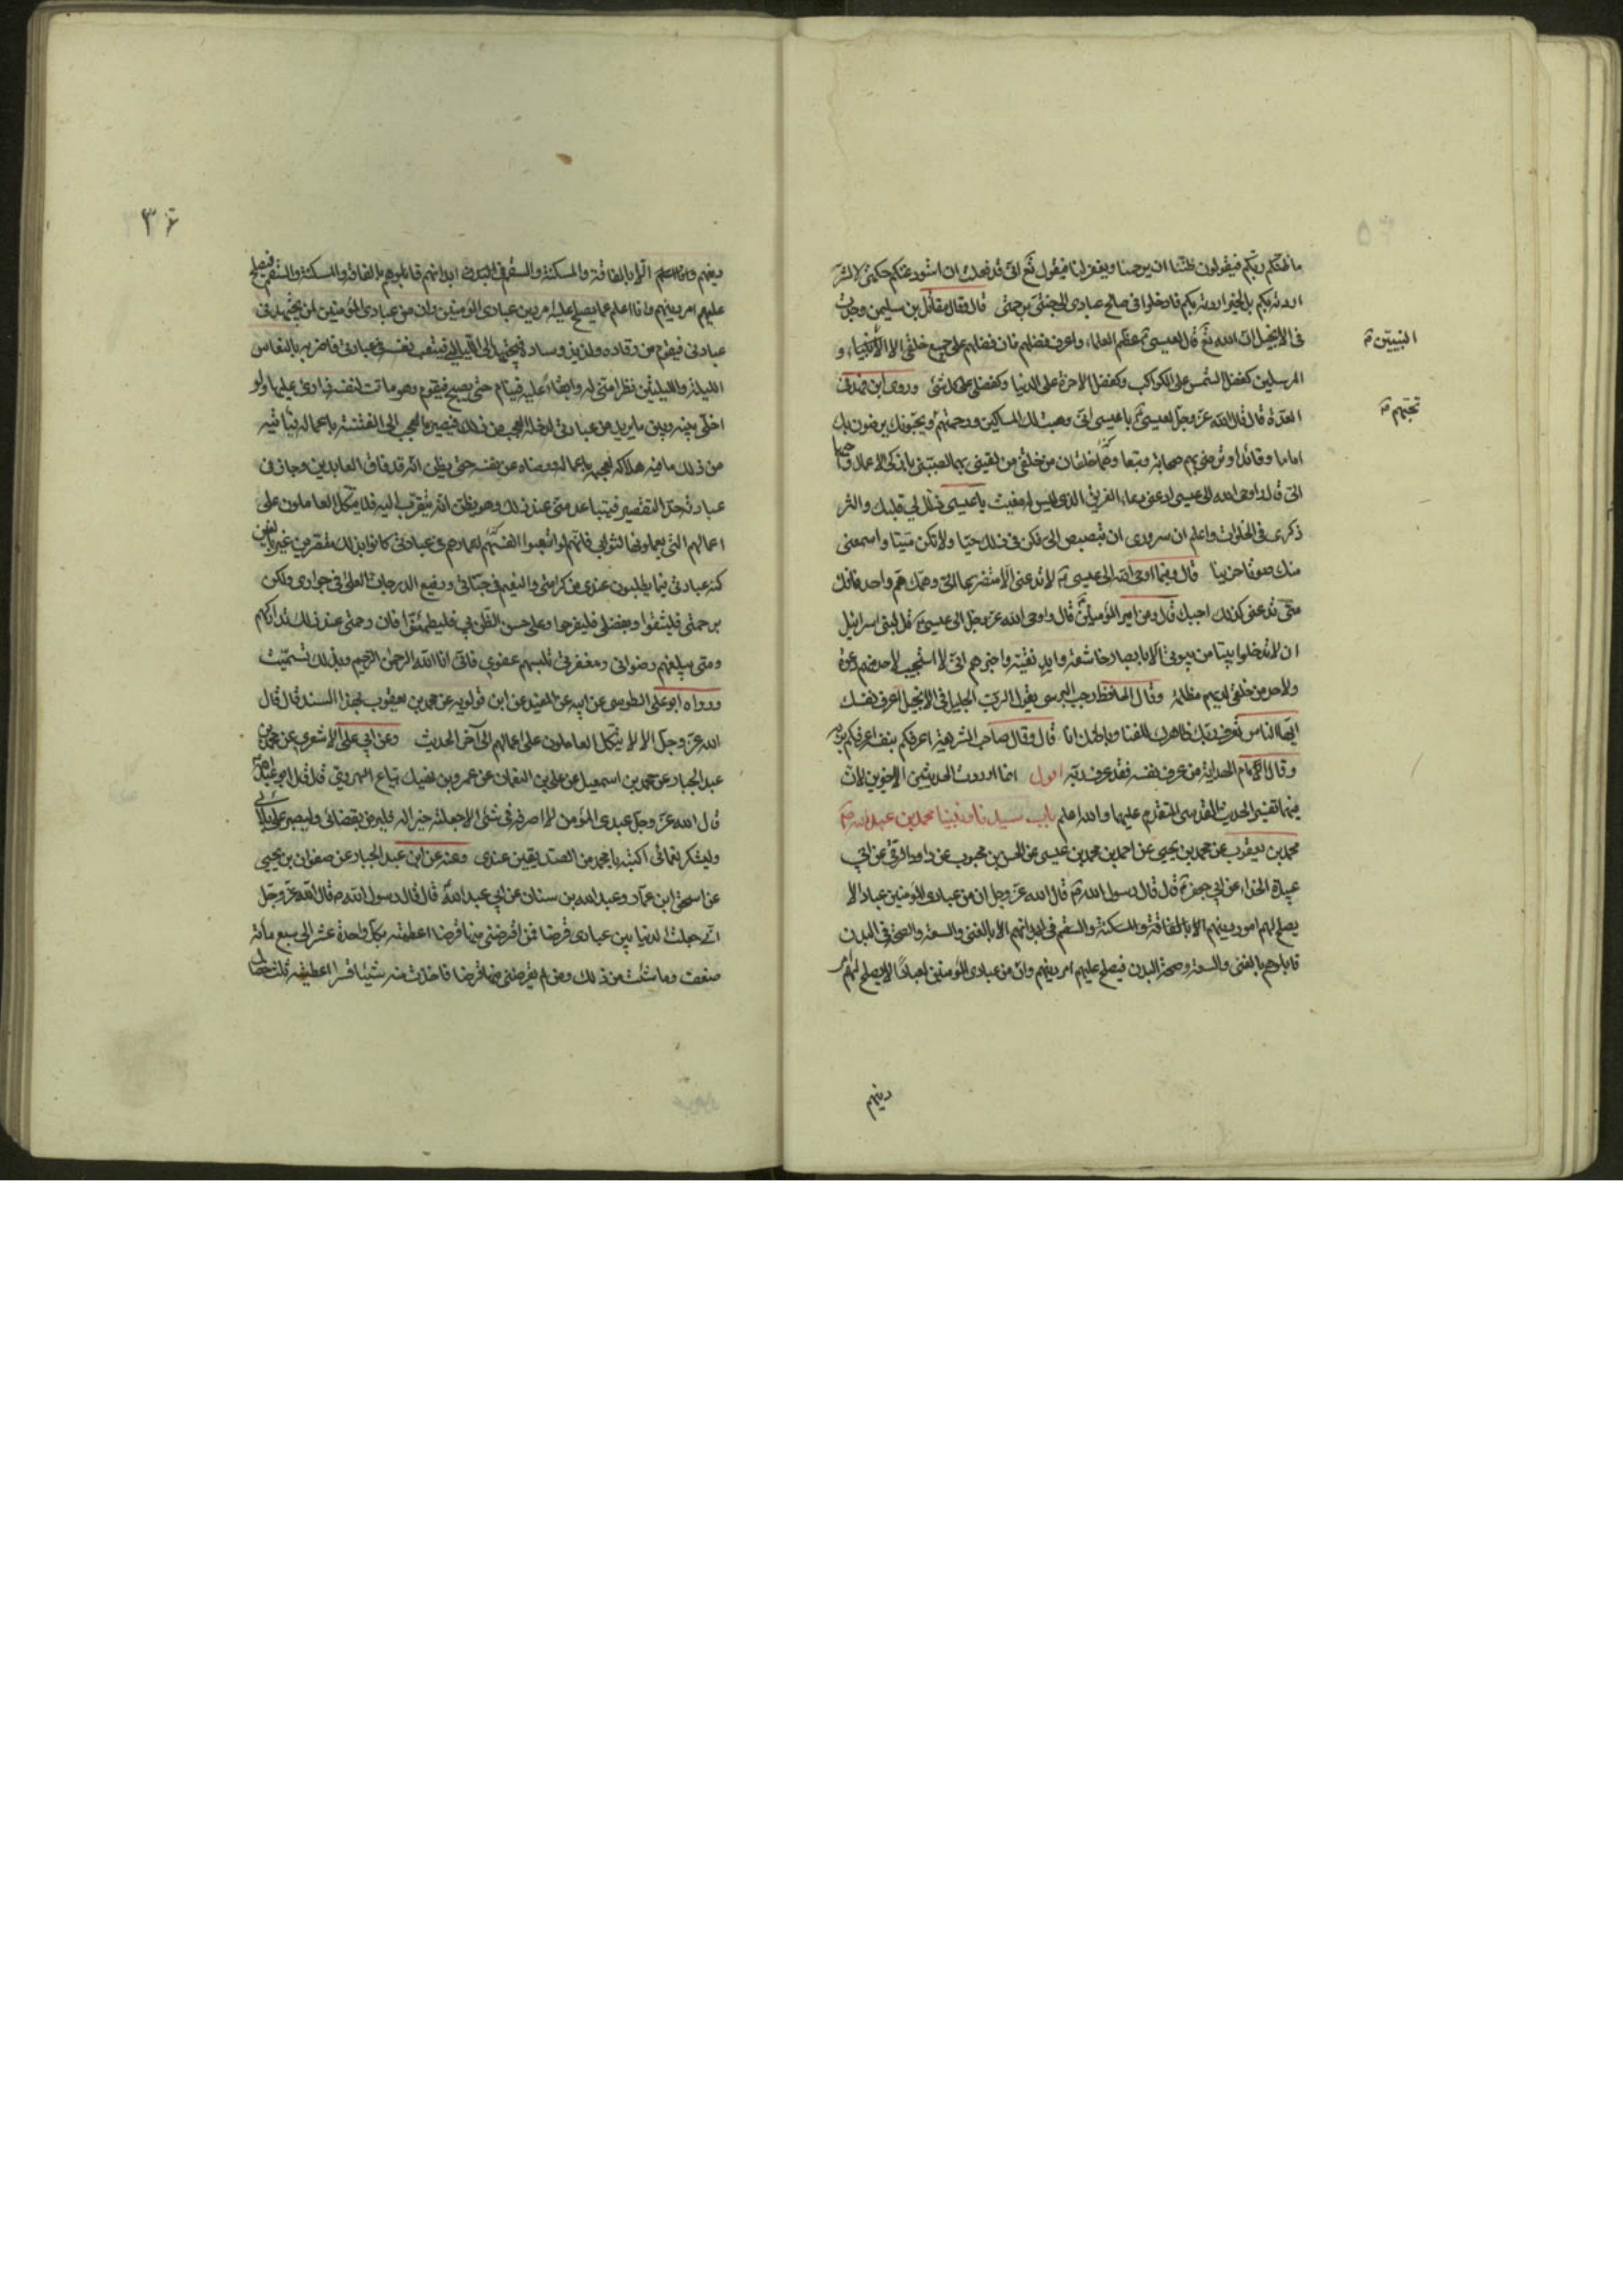 ما ظنكم ربكم فيقولون ظننا ان يرحمنا ويغفر لنا فيقول تع انى قد فعلت ان استودعتكم حكمتى لا لشر
اردته بكم بل لخير اردته بكم فادخلوا فى صالح عبادى الى جنتى برحمتى قال وقال مقاتل بن سليمن وجدت
فى الانجيل ان الله تع قال لعيسى عظم العلماء واعرف فضلهم فان فضلهم على جميع خلقى الا الانبياء و
النبيين
المرسلين كفضل الشمس على الكواكب وكفضل الاخرة على الدنيا وكفضلى على كل شئ وروى ابن فهد فى
العدة قال قال الله عز وجل لعيسى يا عيسى انى وهبت لك المساكين ورحمتهم ويحبونك يرضون بك
تحبهم
اماما وقائدا وترضى بهم صحابة وتبعا وهما خلقان من خلقى من لقينى بهما لقينى بازكى الاعمال واحبها
الى قال واوحى الله الى عيسى ادعنى دعاء الغريق الذى ليس له مغيث يا عيسى ذلل لى قلبك واكثر
ذكرى فى الخلوات واعلم ان سرورى ان تبصبص الى وكن فى ذلك حيا ولا تكن ميتا واسمعنى
منك صوتا حزينا قال وفيما اوحى الله الى عيسى لا تدعنى الا متضرعا الى وهمك هم واحد فانك
متى تدعنى كذلك اجبك قال وعن امير المؤمنين قال واوحى الله عز وجل الى عيسى قل لبنى اسرائيل
ان لا تدخلوا بيتا من بيوتى الا بابصار خاشعة وايد نقية واخبرهم انى لا استجيب لاحد منهم دعوة
ولاحد من خلقى لديهم مظلمة وقال الحافظ رجب البرسى يقول الرب الجليل فى الانجيل اعرف نفسك
ايها الناس تعرف ربك ظاهرك للفنا وباطنك انا قال وقال صاحب الشريعة اعرفكم بنفسه اعرفكم بربه
وقال الامام الهداية من عرف نفسه فقد عرف ربه اقول انما اوردت الحديثين الاخيرين لان
فيهما تفسير الحديث القدسى المتقدم عليهما والله اعلم باب سيدنا ونبينا محمد بن عبد الله
محمد بن يعقوب عن محمد بن يحيى عن احمد بن محمد بن عيسى عن الحسن بن محبوب عن داود الرقى عن ابى
عبيدة الحذاء عن ابى جعفر قال قال رسول الله قال الله عز وجل ان من عبادى المؤمنين عبادا لا
يصلح لهم امر دينهم الا بالفاقة والمسكنة والسقم فى ابدانهم الا بالغنى والسعة والصحة فى البدن
فابلوهم بالغنى والسعة وصحة البدن فيصلح عليهم امر دينهم وان من عبادى المؤمنين لعبادا لا يصلح لهم امر
دينهم
٣٦
دينهم وانا اعلم الا بالفاقة والمسكنة والسقم فى ابدانهم فابلوهم بالفاقة والمسكنة والسقم فيصلح
عليهم امر دينهم وانا اعلم بما يصلح عليه امر دين عبادى المؤمنين وان من عبادى المؤمنين لمن يجتهد فى
عبادتى فيقوم من رقاده ولذيذ وساده فيجتهد لى الليالى فيتعب نفسه فى عبادتى فاضربه بالنعاس
الليلة والليلتين نظرا منى له وابقاء عليه فينام حتى يصبح فيقوم وهو ماقت لنفسه زارئ عليها ولو
اخلى بينه وبين ما يريد من عبادتى لدخله العجب من ذلك فيصيره العجب الى الفتنة باعماله فياتيه
من ذلك ما فيه هلاكه لعجبه باعماله ورضاه عن نفسه حتى يظن انه قد فاق العابدين وجاز فى
عبادته حد التقصير فيتباعد منى عند ذلك وهو يظن انه يتقرب الى فلا يتكل العاملون على
اعمالهم التى يعملونها لثوابى فانهم لو اتعبوا انفسهم اعمارهم فى عبادتى كانوا بذلك مقصرين غير بالغين
كنه عبادتى فيما يطلبون عندى من كرامتى والنعيم فى جناتى ورفيع الدرجات العلى فى جوارى ولكن
برحمتى فليثقوا وبفضلى فليفرحوا وعلى حسن الظن بى فليطمئنوا فان رحمتى عند ذلك تدارككم
ومنى يبلغهم رضوانى ومغفرتى تلبسهم عفوى فانى انا الله الرحمن الرحيم وبذلك تسميت
ورواه ابو على الطوسى عن ابيه عن المفيد عن ابن قولويه عن محمد بن يعقوب بهذا السند قال قال
الله عز وجل الا لا يتكل العاملون على اعمالهم الى آخر الحديث وعن ابى على الاشعرى عن محمد بن
عبد الجبار عن محمد بن اسمعيل عن على بن النعمان عن عمرو بن نهيك بياع الهروى قال قال ابو عبد الله
قال الله عز وجل عبدى المؤمن لا اصرفه فى شئ الا جعلته خيرا له فليرض بقضائى وليصبر على بلائى
وليشكر نعمائى اكتبه يا محمد من الصديقين عندى وعنه عن ابن عبد الجبار عن صفوان بن يحيى
عن اسحق ابن عمار وعبد الله بن سنان عن ابى عبد الله قال قال رسول الله ص قال الله عز وجل
انى جعلت الدنيا بين عبادى قرضا فمن اقرضنى منها قرضا اعطيته بكل واحدة عشرا الى سبع مائة
ضعف وما شئت من ذلك ومن لم يقرضنى منها قرضا فاخذت منه شيئا قسرا اعطيته ثلث خصال